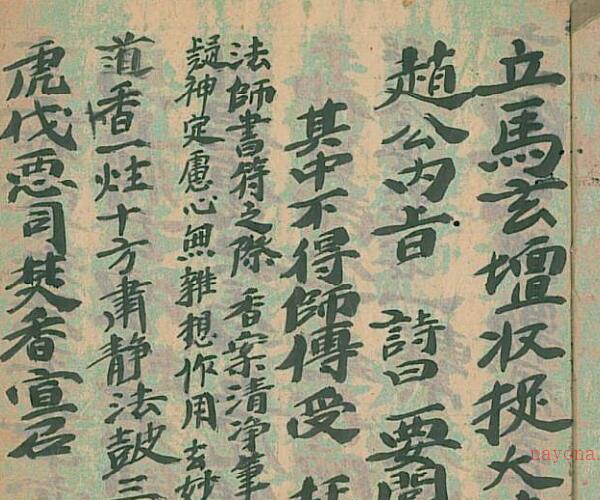 立馬玄壇收捉大
趙公內旨 詩曰 要問
其中不得師傳受
法師書符之際 香案清净筆
疑神定慮心無雜想作用玄妙
道香一炷十方肅静法鼓三
虎伐惡司焚香宣召
nayona.